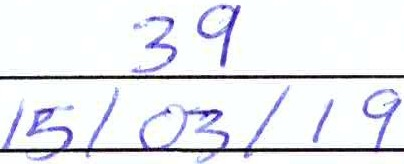 39
15/03/19